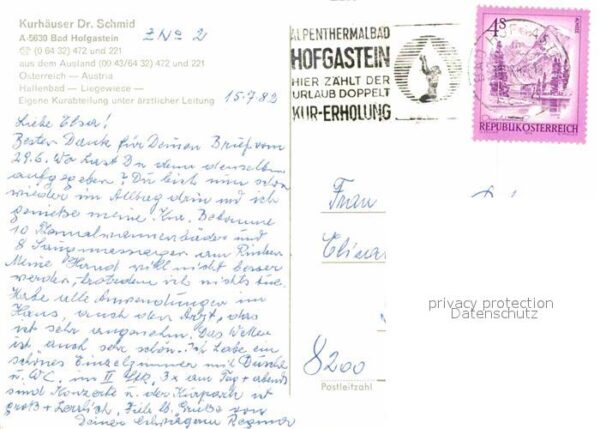 Kurhäuser Dr. Schmid
A-5630 Bad Hofgastein
☎ (0 64 32) 472 und 221
aus dem Ausland (00 43/64 32) 472 und 221
Österreich — Austria
Hallenbad — Liegewiese —
Eigene Kurabteilung unter ärztlicher Leitung
ZNo 2
15.7.82
Liebe Elser!
Besten Dank für Deinen Brief vom
29.6. Wo hast Du denn denselben
aufgegeben? Du bist nun schon
wieder im Alltag drin und ich
genieße meine Kur. Bekomme
10 und
8 am Rücken
Meine Hand will nicht besser
werden, trotzdem ich nichts tue.
Habe alle Anwendungen im
Haus, auch den Arzt, das
ist sehr angenehm. Das Wetter
ist auch sehr schön. Ich habe ein
schönes Einzelzimmer mit Dusche
u. WC. im II 3x am Tag + abends
sind Konzerte u. der Kurpark ist
groß + herrlich. Viele lb. Grüße von
Deiner Regina
ALPENTHERMALBAD
HOFGASTEIN
HIER ZÄHLT DER
URLAUB DOPPELT
KUR-ERHOLUNG
4S
ALMSEE
REPUBLIK ÖSTERREICH
BAD HOFGASTEIN
Frau
8200
Postleitzahl
privacy protection
Datenschutz